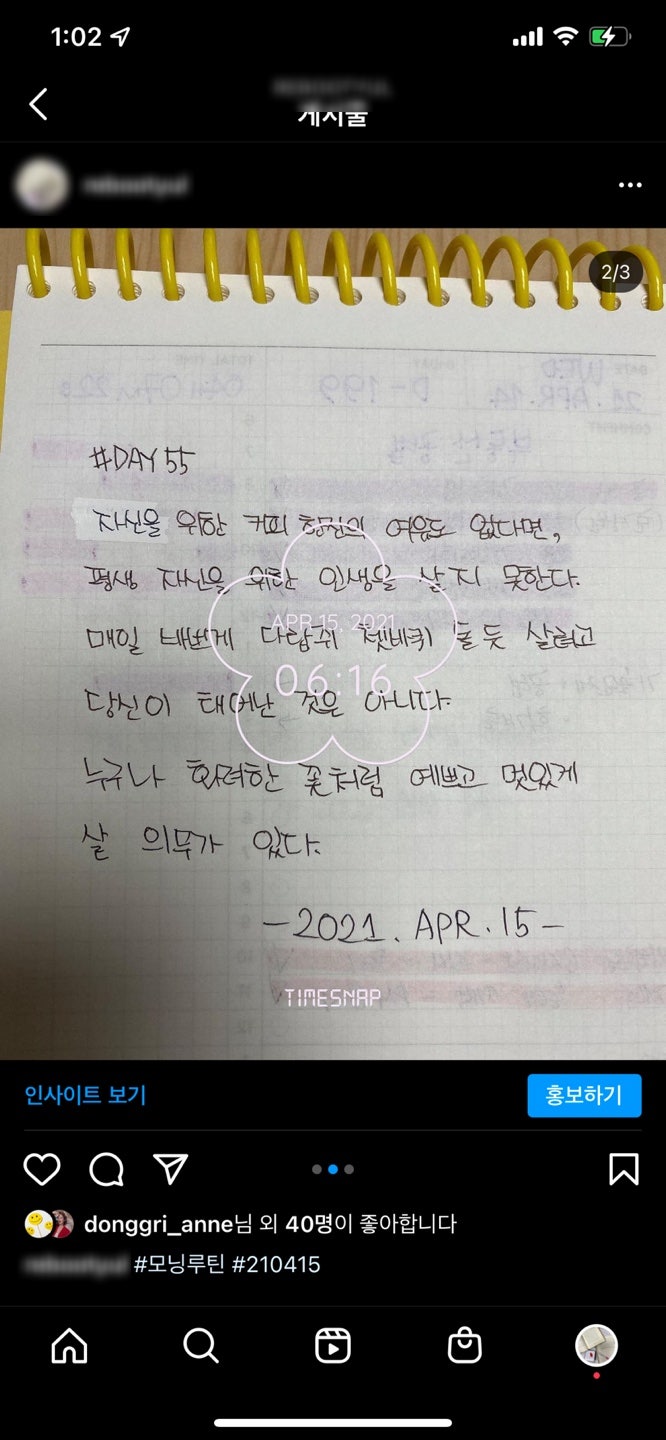 1:02
게시물
2/3
#DAY 55
자신을 위한 커피 한잔의 여유도 없다면,
평생 자신을 위한 인생을 살지 못한다.
매일 바쁘게 다람쥐 쳇바퀴 돌듯 살려고
당신이 태어난 것은 아니다.
누구나 화려한 꽃처럼 예쁘고 멋있게
살 의무가 있다.
-2021. APR. 15-
APR 15, 2021
06:16
TIMESNAP
인사이트 보기
홍보하기
donggri_anne님 외 40명이 좋아합니다
#모닝루틴 #210415